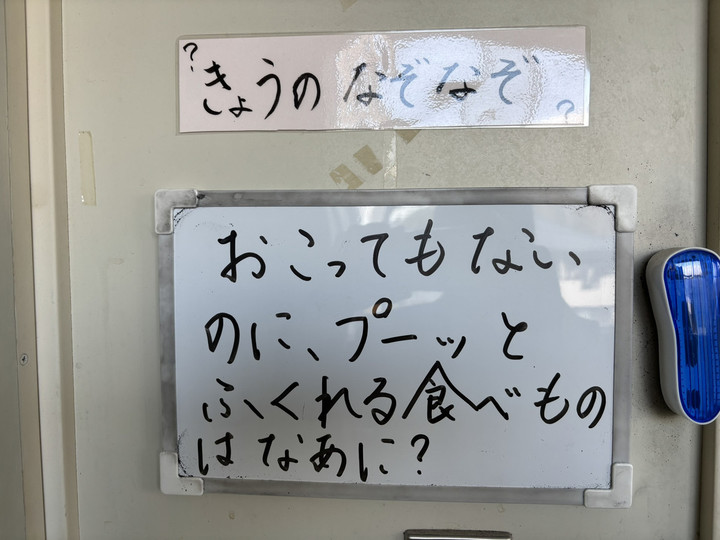 ? きょうの なぞなぞ ?
おこってもない
のに、プーッと
ふくれる食べもの
はなあに?